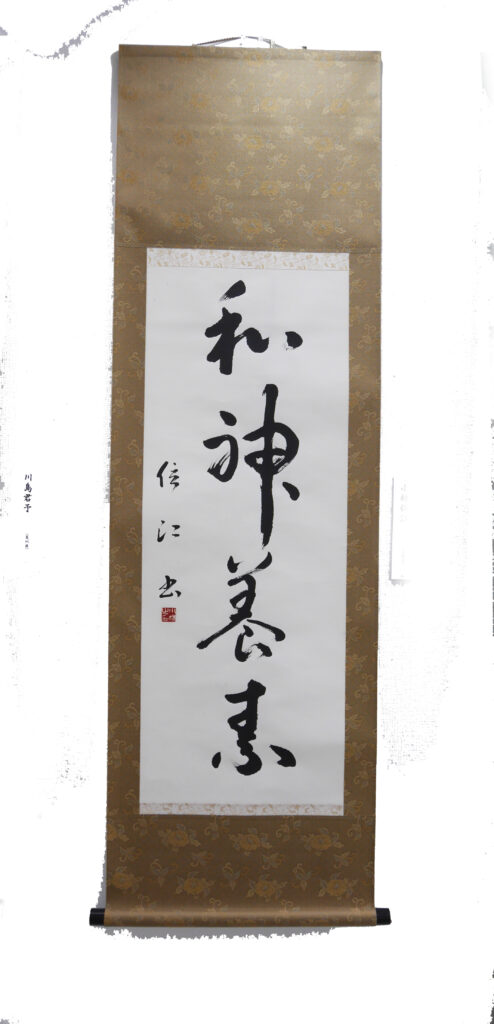 和神養素
信江書
川島君子